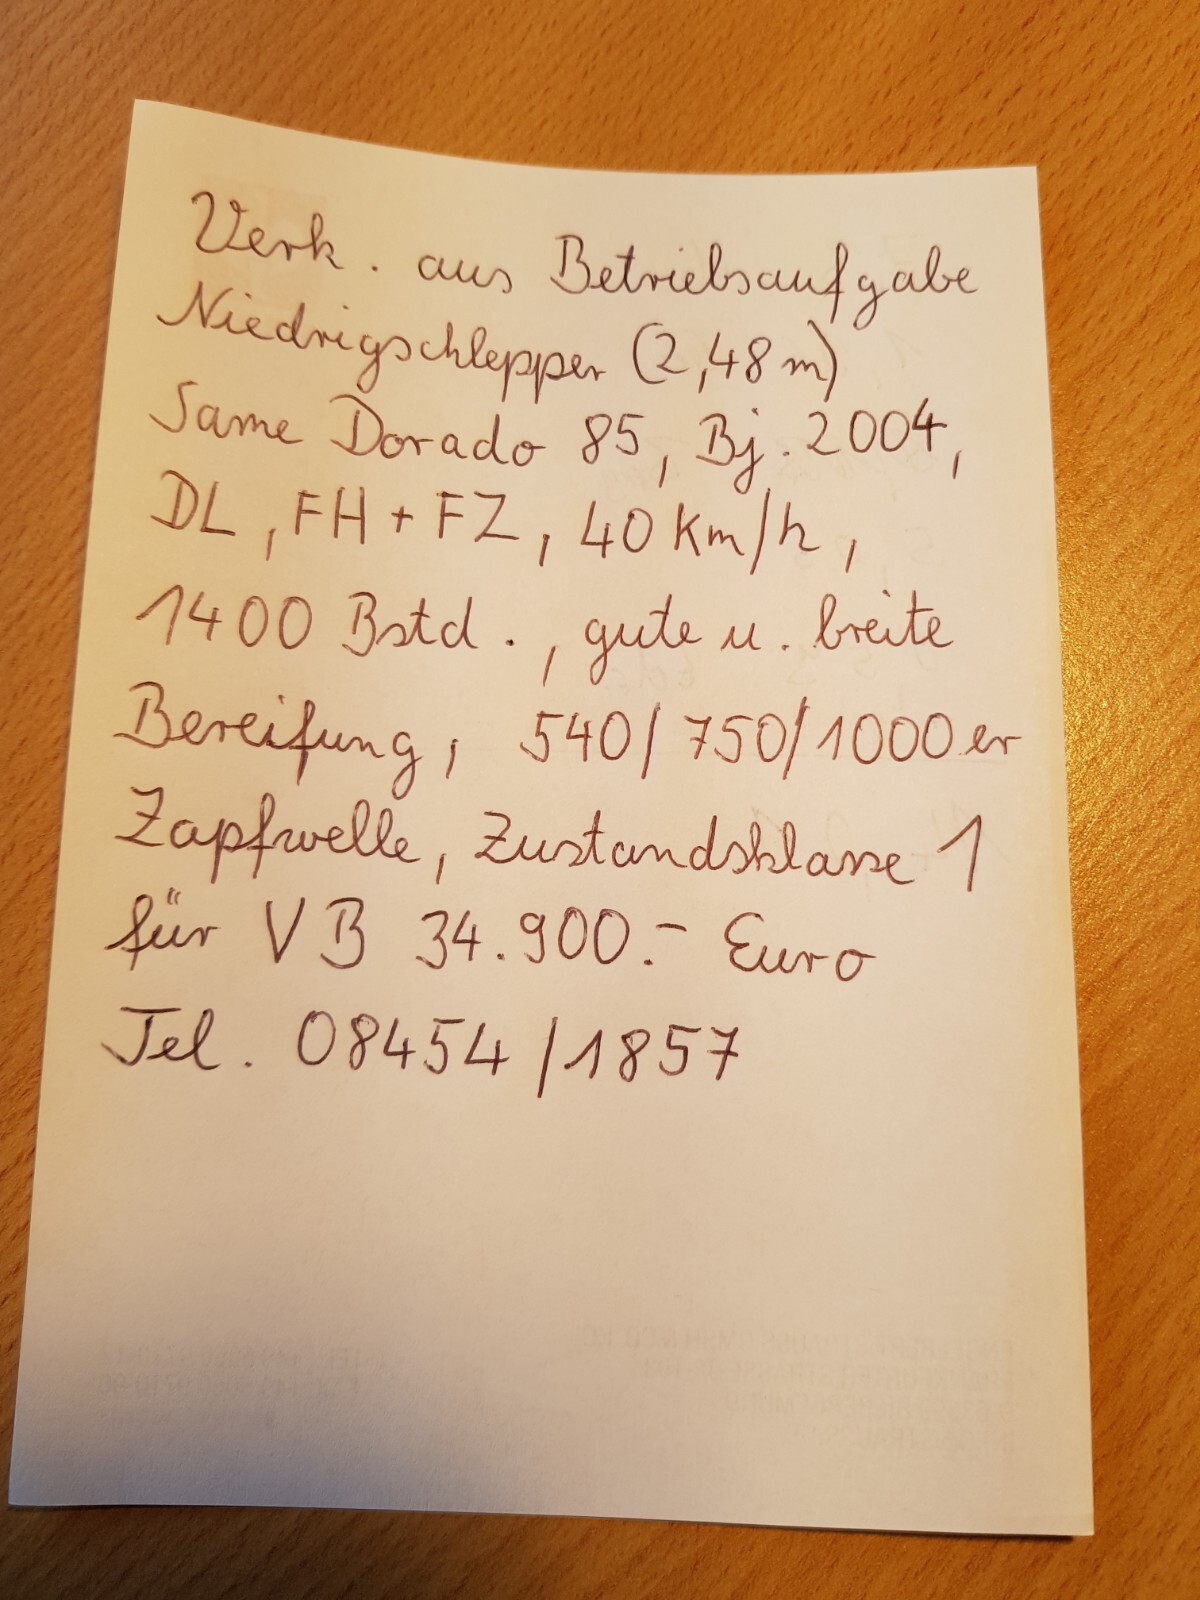 Verk. aus Betriebsaufgabe
Niedrigschlepper (2,48 m)
Same Dorado 85, Bj. 2004,
DL, FH + FZ, 40 Km/h,
1400 Bstd., gute u. breite
Bereifung, 540/750/1000er
Zapfwelle, Zustandsklasse 1
für VB 34.900.- Euro
Tel. 08454/1857